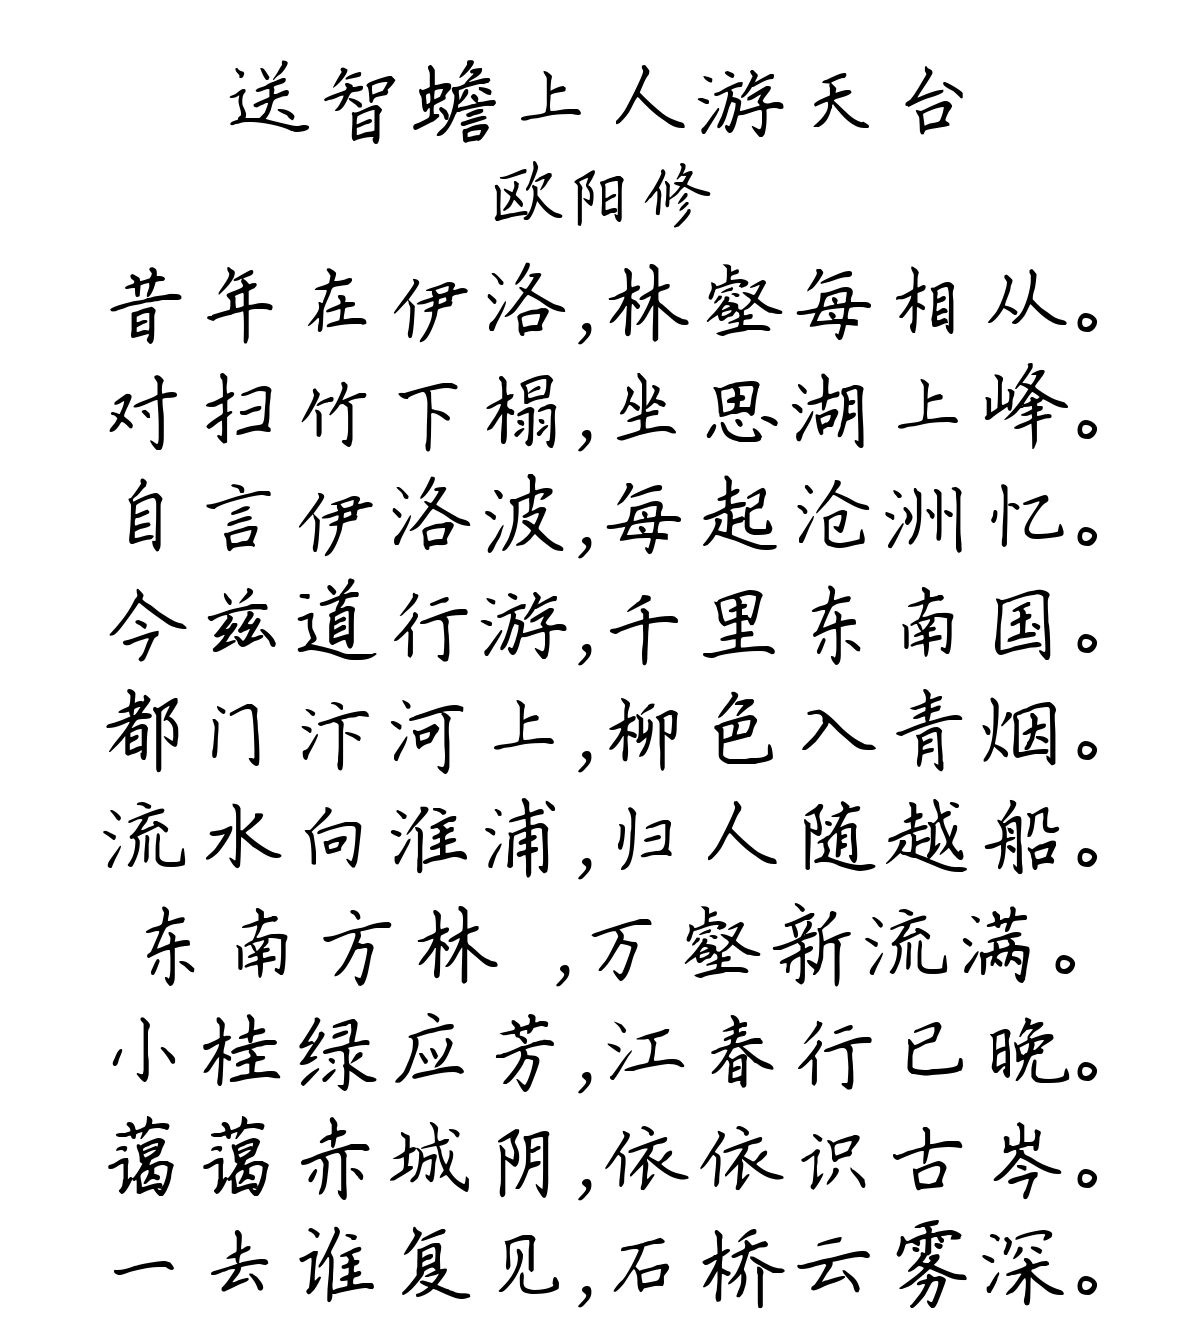 送智蟾上人游天台
欧阳修
昔年在伊洛,林壑每相从。
对扫竹下榻,坐思湖上峰。
自言伊洛波,每起沧洲忆。
今兹道行游,千里东南国。
都门汴河上,柳色入青烟。
流水向淮浦,归人随越船。
东南方林 ,万壑新流满。
小桂绿应芳,江春行已晚。
蔼蔼赤城阴,依依识古岑。
一去谁复见,石桥云雾深。